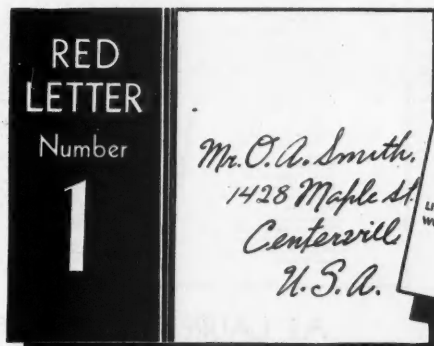 RED
LETTER
Number
1
Mr. O. A. Smith.
1428 Maple St.
Centerville
U.S.A.